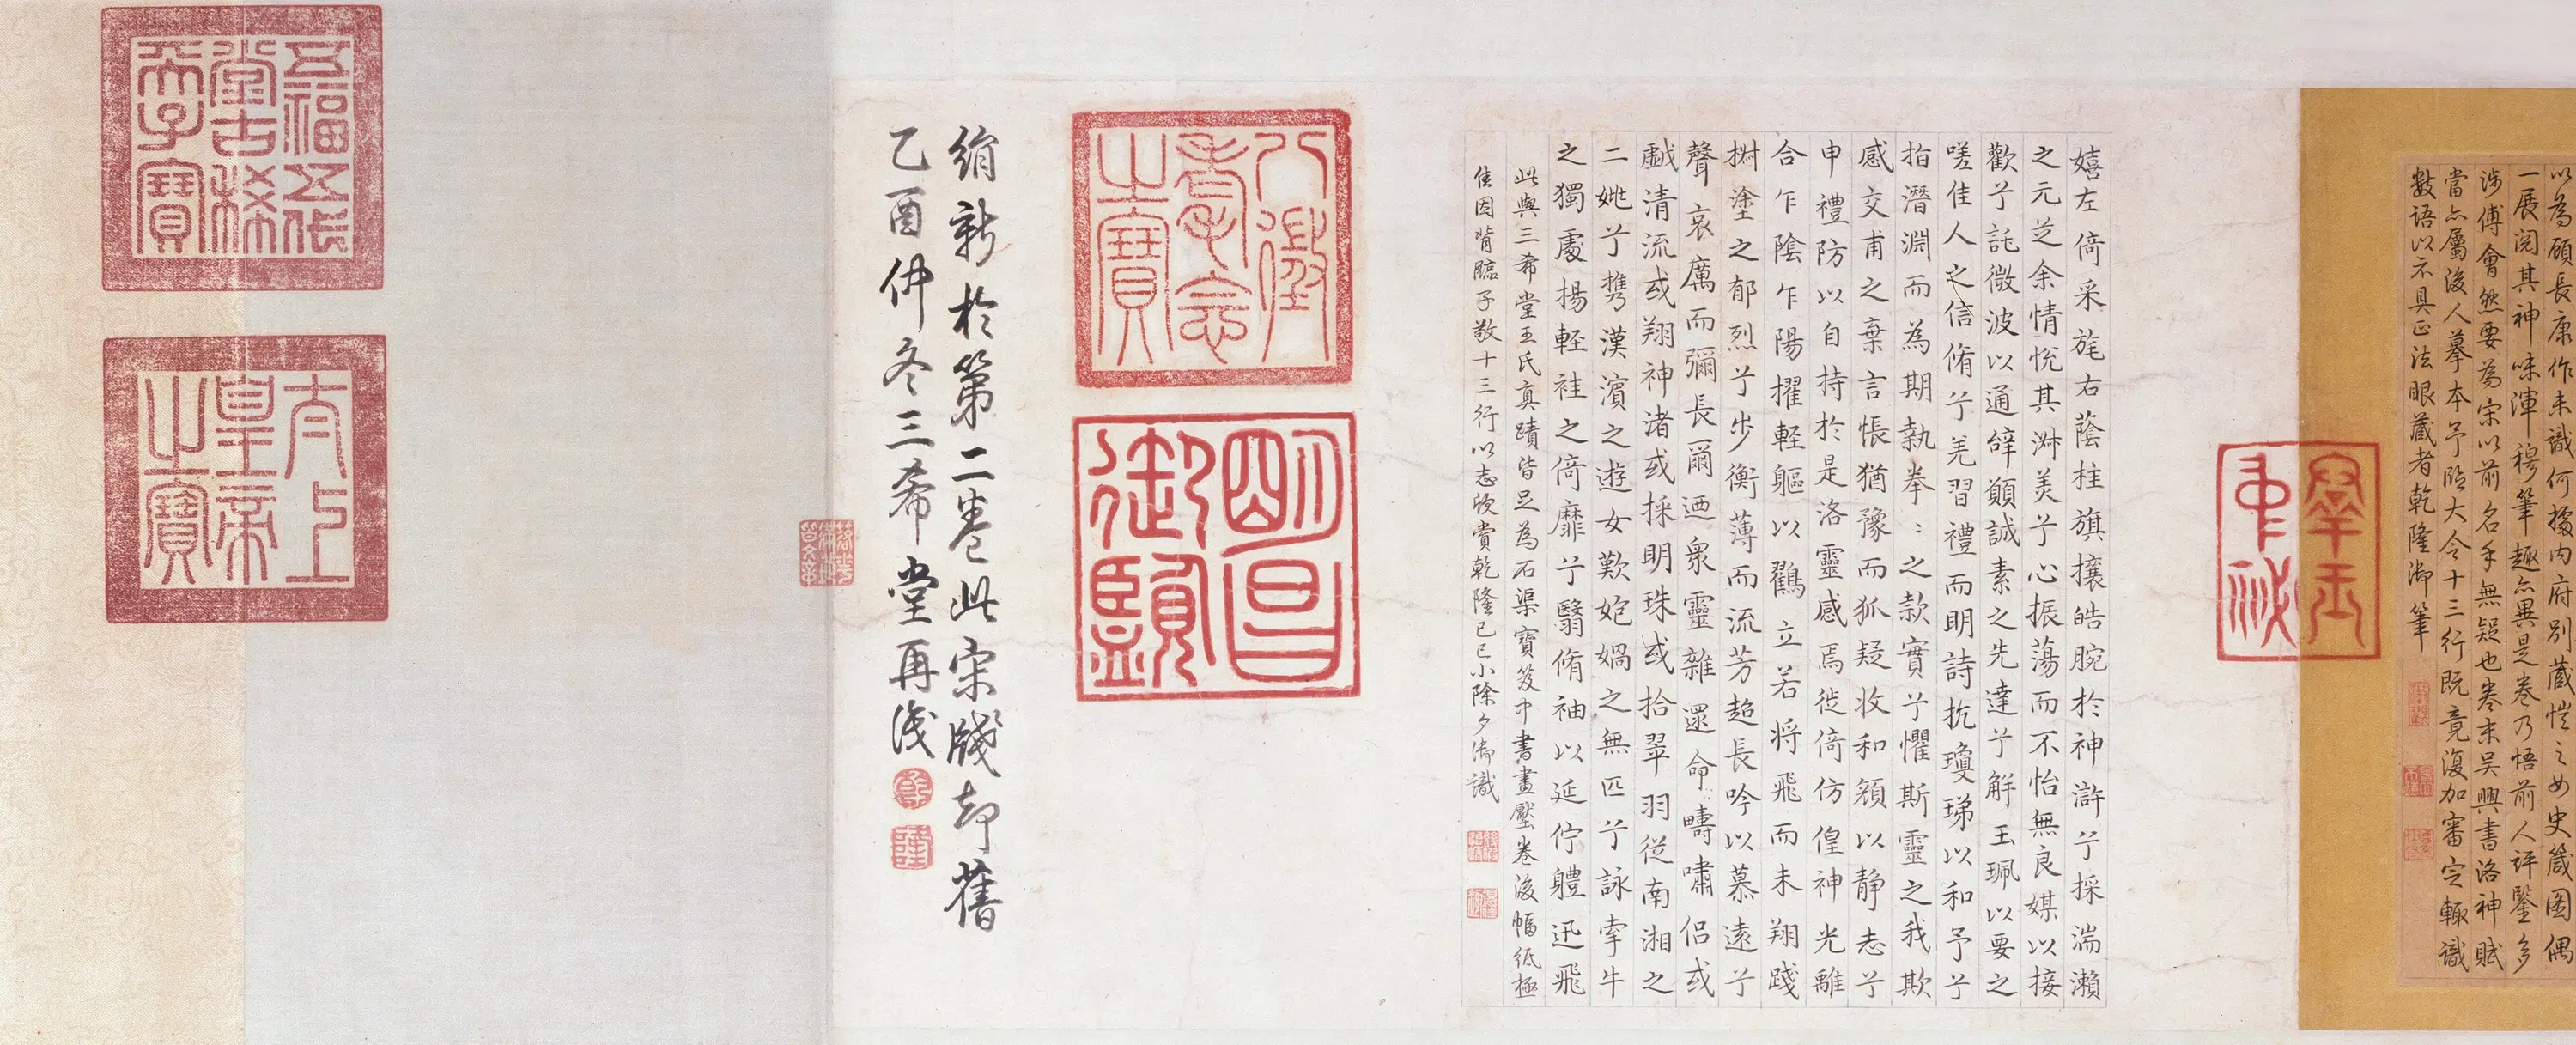 以為顧長康作未識何據内府別藏愷之女史箴圖偶
一展閱其神味渾穆筆趣亦異是卷乃悟前人評鑒多
涉傅會然要為宋以前名手無疑也卷末吳興書洛神賦
當亦屬後人摹本予臨大令十三行既竟復加審定輒識
數語以示具正法眼藏者乾隆御筆
嬉左倚采旄右蔭桂旗攘皓腕於神滸兮採湍瀨
之元芝余情悅其淑美兮心振蕩而不怡無良媒以接
歡兮託微波以通辝願誠素之先達兮解玉珮以要之
嗟佳人之信脩兮羌習禮而明詩抗瓊珶以和予兮
指潛淵而為期執拳〻之款實兮懼斯靈之我欺
感交甫之棄言悵猶豫而狐疑收和顏以靜志兮
申禮防以自持於是洛靈感焉徙倚仿偟神光離
合乍陰乍陽擢輕軀以鸖立若將飛而未翔踐
椒塗之郁烈兮步衡薄而流芳超長吟以慕遠兮
聲哀厲而彌長爾迺衆靈雜遝命疇嘯侶或
戲清流或翔神渚或採明珠或拾翠羽從南湘之
二姚兮攜漢濱之遊女歎匏媧之無匹兮詠牽牛
之獨處揚輕袿之倚靡兮翳脩袖以延佇體迅飛
此與三希堂王氏真蹟皆足為石渠寶笈中書畫壓卷後幅紙極
佳因背臨子敬十三行以志欣賞乾隆己巳小除夕御識
八徵耄念之寶
明昌御覽
絹新於第二卷此宋牋却舊
乙酉仲冬三希堂再識
落花滿地皆文章
五福五代堂古稀天子寶
太上皇帝之寶